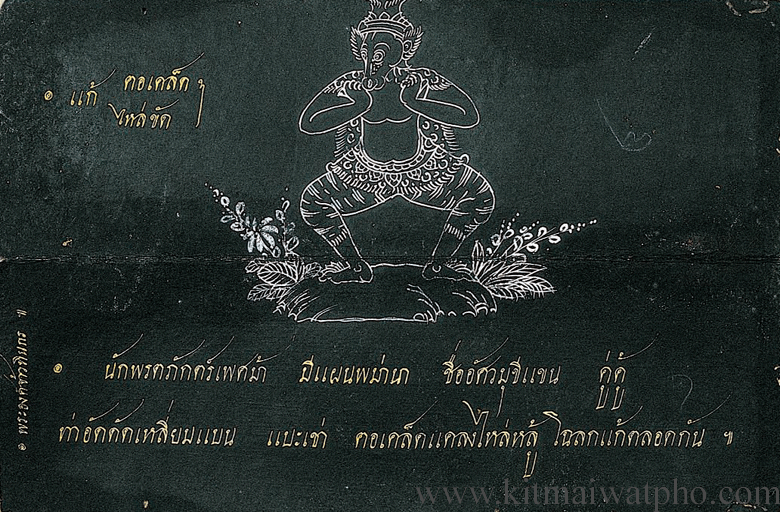 ๏ แก้ คอเคล็ด
ไหล่ขัด ฯ
๏ นักพรตภักตร์เพศม้า มีแผนพม่านา ชื่ออัศวมุขีแขน คู่คู้
ท่าอัดดัดเหลี่ยมแบน แบะเข่า คอเคล็ดแคลงไหล่หลู้ โฉลกแก้ตลอดกัน ๚
๏ พระองค์เจ้าทินกร ๚
www.kitmaiwatpho.com